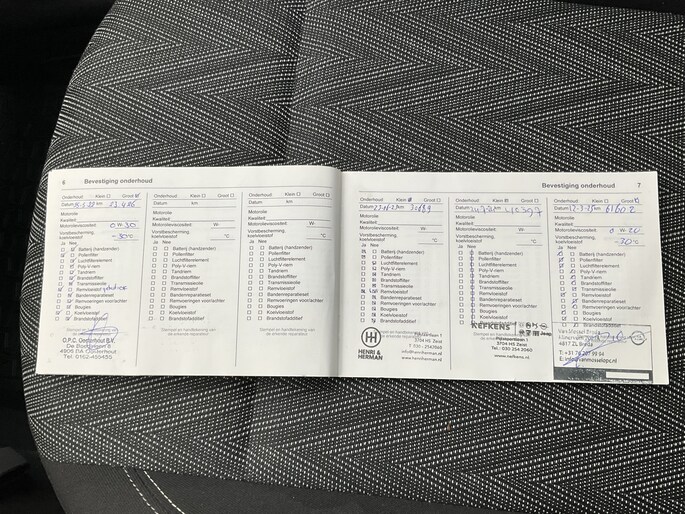 6 Bevestiging onderhoud
Onderhoud: Klein Groot
Datum km
Motorolie
Kwaliteit:
Motorolieviscositeit: 0 W-30
Vorstbescherming,
koelvloeistof -30°C
Ja Nee
Batterij (handzender)
Pollenfilter
Luchtfilterelement
Poly-V-riem
Tandriem
Brandstoffilter
Transmissieolie
Remvloeistof
Bandenreparatieset
Remvoeringen voor/achter
Bougies
Koelvloeistof
Brandstofadditief
O.P.C. Oosterhout B.V.
Tel. 0162-459455
Onderhoud: Klein Groot
Datum km
Motorolie
Kwaliteit:
Motorolieviscositeit: W-
Vorstbescherming,
koelvloeistof °C
Ja Nee
Batterij (handzender)
Pollenfilter
Luchtfilterelement
Poly-V-riem
Tandriem
Brandstoffilter
Transmissieolie
Remvloeistof
Bandenreparatieset
Remvoeringen voor/achter
Bougies
Koelvloeistof
Brandstofadditief
Stempel en handtekening van
de erkende reparateur
Onderhoud: Klein Groot
Datum km
Motorolie
Kwaliteit:
Motorolieviscositeit: W-
Vorstbescherming,
koelvloeistof °C
Ja Nee
Batterij (handzender)
Pollenfilter
Luchtfilterelement
Poly-V-riem
Tandriem
Brandstoffilter
Transmissieolie
Remvloeistof
Bandenreparatieset
Remvoeringen voor/achter
Bougies
Koelvloeistof
Brandstofadditief
Stempel en handtekening van
de erkende reparateur
Bevestiging onderhoud 7
Onderhoud: Klein Groot
Datum km
Motorolie
Kwaliteit:
Motorolieviscositeit: W-
Vorstbescherming,
koelvloeistof °C
Ja Nee
Batterij (handzender)
Pollenfilter
Luchtfilterelement
Poly-V-riem
Tandriem
Brandstoffilter
Transmissieolie
Remvloeistof
Bandenreparatieset
Remvoeringen voor/achter
Bougies
Koelvloeistof
Brandstofadditief
HH
HENRI &
HERMAN
3704 HS Zeist
info@henriherman.com
www.henriherman.com
Onderhoud: Klein Groot
Datum km
Motorolie
Kwaliteit:
Motorolieviscositeit: W-
Vorstbescherming,
koelvloeistof °C
Ja Nee
Batterij (handzender)
Pollenfilter
Luchtfilterelement
Poly-V-riem
Tandriem
Brandstoffilter
Transmissieolie
Remvloeistof
Bandenreparatieset
Remvoeringen voor/achter
Bougies
Koelvloeistof
Brandstofadditief
NEFKENS
3704 HS Zeist
Tel.: 030 254 2060
www.nefkens.nl
Onderhoud: Klein Groot
Datum 12-3-25 km 61602
Motorolie
Kwaliteit:
Motorolieviscositeit: 0 W-20
Vorstbescherming,
koelvloeistof -30°C
Ja Nee
Batterij (handzender)
Pollenfilter
Luchtfilterelement
Poly-V-riem
Tandriem
Brandstoffilter
Transmissieolie
Remvloeistof
Bandenreparatieset
Remvoeringen voor/achter
Bougies
Koelvloeistof
Brandstofadditief
Van Mossel Breda
4817 ZL Breda